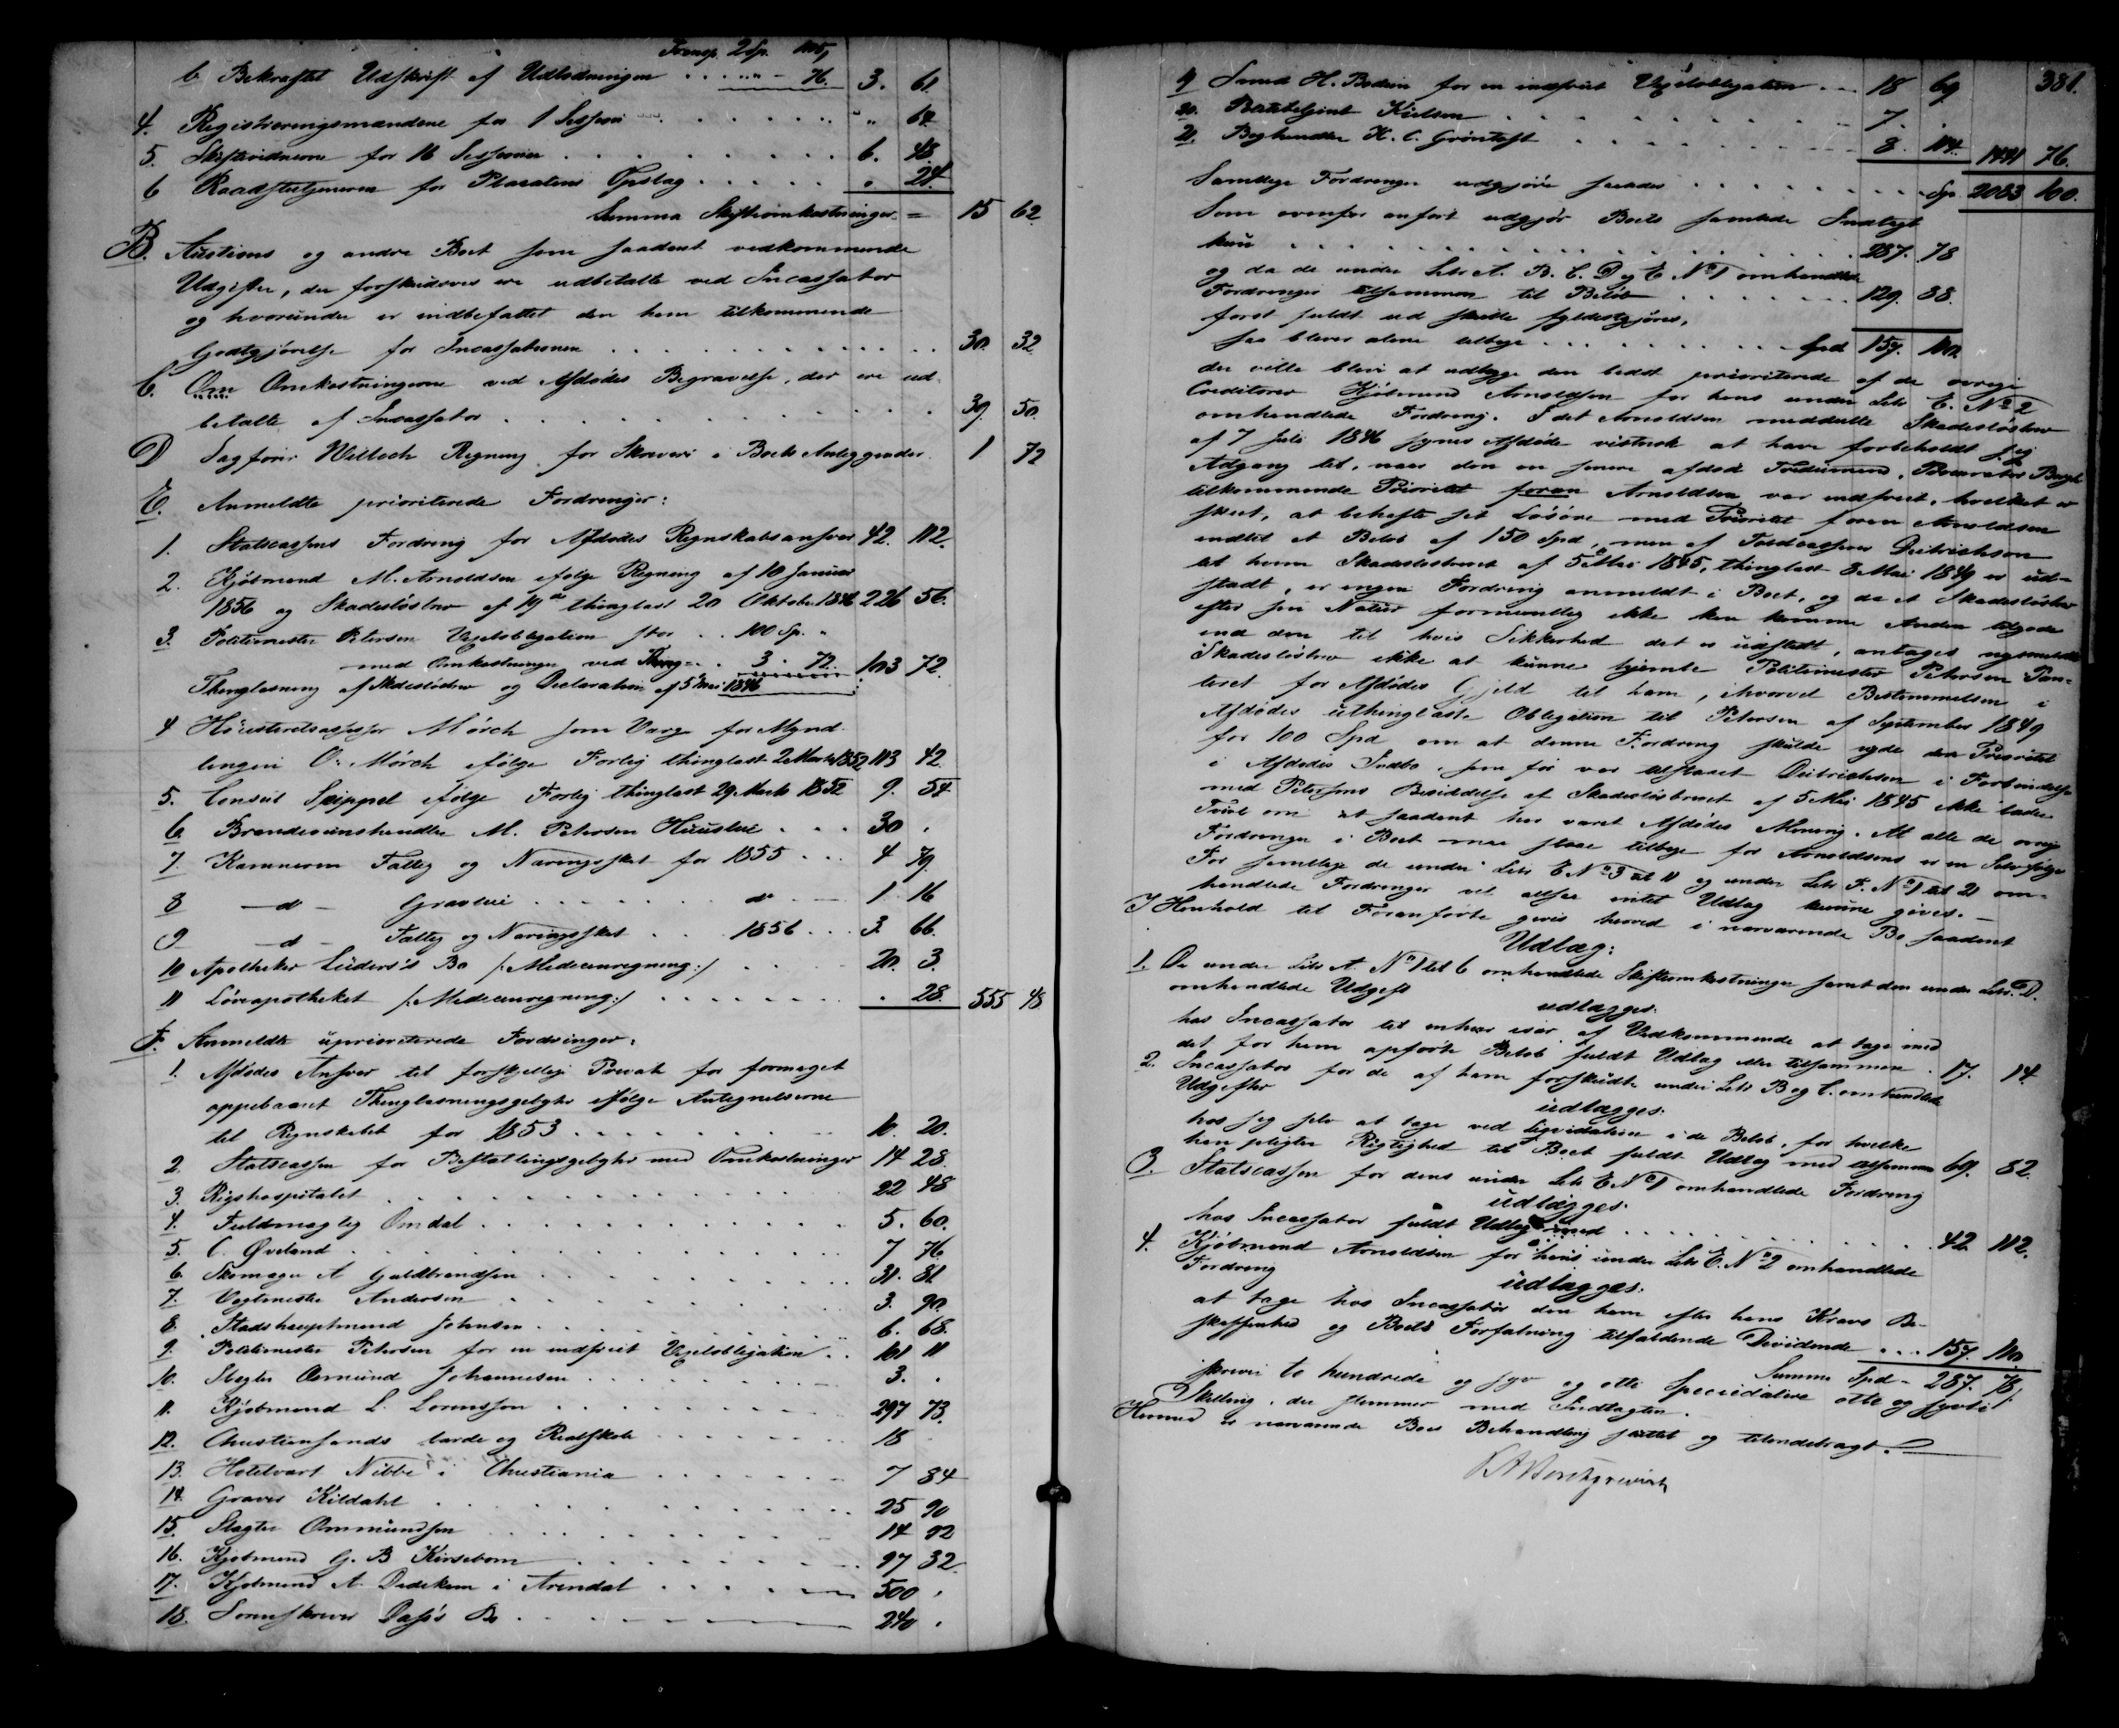 Transp. 2 Sp. 105,
b. Bekræftet Udskrift af Udlodningen . . . . . - 76. 3. 61.
4. Registreringsmændene for 1 Session . . . . . . " 64.
5. Skiftevidnerne for 16 Sessioner . . . . . . . 6. 48.
6 Raadstutjeneren for Placatens Opslag . . . . . " 24.
Summa Skifteomkostninger = 15 62.
B. Auctions og andre Boet som saadant vedkommende
Udgifter, der forskudsvis ere udbetalte ved Incassator
og hvorunder er indbefattet den ham tilkommende
Godtgjørelse for Incassationen . . . . . . . . 30. 32
C. Om Omkostningerne ved Afdødes Begravelse, der ere ud-
betalte af Incassator . . . . . . . . . 39. 50.
D Sagfører Willoch Regning for Skriveri i Boets Anliggender. 1 72
E. Anmeldte prioriterede Fordringer:
1. Statscassens Fordring for Afdødes Regnskabsansvar 42. 112.
2. Kjøbmand M. Arnoldsen ifølge Regning af 10 Januar
1856 og Skadesløsbrev af thinglæst 20 Oktober 1846 226 56.
3. Politimester Petersen Vexelobligation stor . . 100 Sp. "
med Omkostninger ved Thing- . . 3. 72. 103 72.
Thinglæsning af Skadesløsbrev og Declaration af 5 Mai 1846
4 Høiesteretsassessor Mørch som Værge for Mynd-
lingen O. Mørch ifølge Forlig thinglæst 2 Marts 1852 113 42.
5. Consul Seippel ifølge Forlig thinglæst 29 Marts 1852 9. 54.
6 Brændeviinshandler M. Petersen Huusleie . . . 30 .
7. Kæmneren Fattig og Næringsskat for 1855 . . . 4 79.
8 — d — Gravleie . . . . . . d° . . 1 16
9 — d — Fattig og Næringsskat . . . 1856 . . . 3. 66.
10 Apotheker Lüders's Bo /: Medicinregning :/ . . . . 20. 3.
11 Løveapotheket /: Medicinregning :/ . . . . . . . . 28. 555 48
F. Anmeldte uprioriterede Fordringer.
1. Afdødes Ansvar til forskjellige Private for formeget
oppebaaret Thinglæsningsgebyhr ifølge Antegnelserne
til Regnskabet for 1853 . . . . . . . 10. 20.
2. Statscassen for Bestallingsgebyhr med Omkostninger 14 28.
3. Rigshospitalet . . . . . . . . . . 22 48
4. Fuldmægtig Omdal . . . . . . . . . 5. 60.
5. C. Øveland . . . . . . . . . . 7 76
6. Skomager A Guldbrandsen . . . . . . . . 31. 81.
7. Vagtmester Andersen . . . . . . . . 3. 90.
8. Stadshauptmand Johnsen . . . . . . . 6. 68.
9. Politimester Petersen for en indfriet Vexelobligation . . 101 11
10. Slagter Osmund Johannesen . . . . . . . 3. .
11. Kjøbmand L. Lorentsen . . . . . . . . 297 73.
12. Christiansands lærde og Realskole . . . . . . 18
13. Hotelvært Nibbe i Christiania . . . . . . . 7 84
14. Graver Kildahl . . . . . . . . . 25 90
15. Slagter Ommundsen . . . . . . . . 14 92
16. Kjøbmand G. B Kirsebom . . . . . . . 97 32.
17. Kjøbmand A. Dedekam i Arendal . . . . . . 500 .
18. Sorenskriver Dass's Bo . . . . . . . . 240 .
381.
19 Smed H. Bodom for en indfriet Vexelobligation . . . 18 69
20. Kielsen . . . . . . . 7 .
21. Boghandler H. C. Grøntoft . . . . . . . . 8. 114. 1441 76.
Samtlige Fordringer udgjøre saaledes . . . . . . . . Sp 2083 100.
Som ovenfor anført udgjør Boets samlede Indtægt
kun . . . . . . . . . . . . . . . 287. 78
og da de under Litr A. B. C. D og E N° 1 omhandlede
Fordringer tilsammen til Beløb . . . . . . . 129. 88.
først fuldt ud skulle fyldestgjøres,
saa bliver alene tilbage . . . . . . . . Spd 157. 110.
der ville blive at udlægge den bedst prioriterede af de øvrige
Creditorer Kjøbmand Arnoldsen for hans under Litr E. N° 2
omhandlede Fordring. I det Arnoldsen meddeelte Skadesløsbrev
af 7 Juli 1846 synes Afdøde vistnok at have forbeholdt sig
Adgang til, naar den en senere afdød Procurator
tilkommende Prioritet foran Arnoldsen var indfriet, hvilket er
skeet, at behefte sit Løsøre med Prioritet foran Arnoldsen
indtil et Beløb af 150 Spd, men af Toldcasserer Deitrichson
til hvem Skadesløsbrevet af 5 Mai 1845, thinglæst 8 Mai 1849 er ud-
stædt, er ingen Fordring anmeldt i Boet, og da et Skadesløsbrev
efter sin Natur formeentlig ikke kan komme Anden tilgode
end den til hvis Sikkerhed det er udstedt, antages nysmeldte
Skadesløsbrev ikke at kunne hjemle Politimester Petersen Pan-
teret for Afdødes Gjeld til ham, ihvorvel Bestemmelsen i
Afdødes uthinglæste Obligation til Petersen af September 1849
for 100 Spd om at denne Fordring skulde nyde den Prioritet
i Afdødes Indbo, som før var tilstaaet Deitrichson i Forbindelse
med Petersens Besiddelse af Skadesløsbrevet af 5 Mai 1845 ikke lader
Tvivl om at saadant har været Afdødes Mening. At alle de øvrige
Fordringer i Boet maa staae tilbage for Arnoldsens er en Selvfølge
For samtlige de under Litr E N° 3 til 11 og under Litr F. N° 1 til 21 om-
handlede Fordringer vil altsaa intet Udlæg kunne gives. —
I Henhold til Foranførte gives herved i nærværende Bo saadant
Udlæg:
1. De under Litr A. N° 1 til 6 omhandlede Skifteomkostninger samt den under Litr. D.
omhandlede Udgift
udlægges.
hos Incassator til enhver især af Vedkommende at tage med
det for ham opførte Beløb fuldt Udlæg eller tilsammen . 17. 14
2. Incassator for de af ham forskudte under Litr B og C. omhandlede
Udgifter
udlægges.
hos sig selv at tage ved Liqvidation i de Beløb, for hvilke
han pligter Rigtighed til Boet fuldt Udlæg med tilsammen 69. 82.
3. Statscassen for dens under Litr E N° 1 omhandlede Fordring
udlægges.
hos Incassator fuldt Udlæg med . . . . . . . . . 42. 112.
4. Kjøbmand Arnoldsen for hans under Litr E. N° 2 omhandlede
Fordring
udlægges.
at tage hos Incassator den ham efter hans Kravs Be-
skaffenhed og Boets Forfatning tilfaldende Dividende . . . 157. 110.
Summa Spd - 287. 78,
skriver to hundrede og syv og otti Speciedalere otte og syvti
Skilling, der stemmer med Indtægten.
Hermed er nærværende Boes Behandling sluttet og tilendebragt.